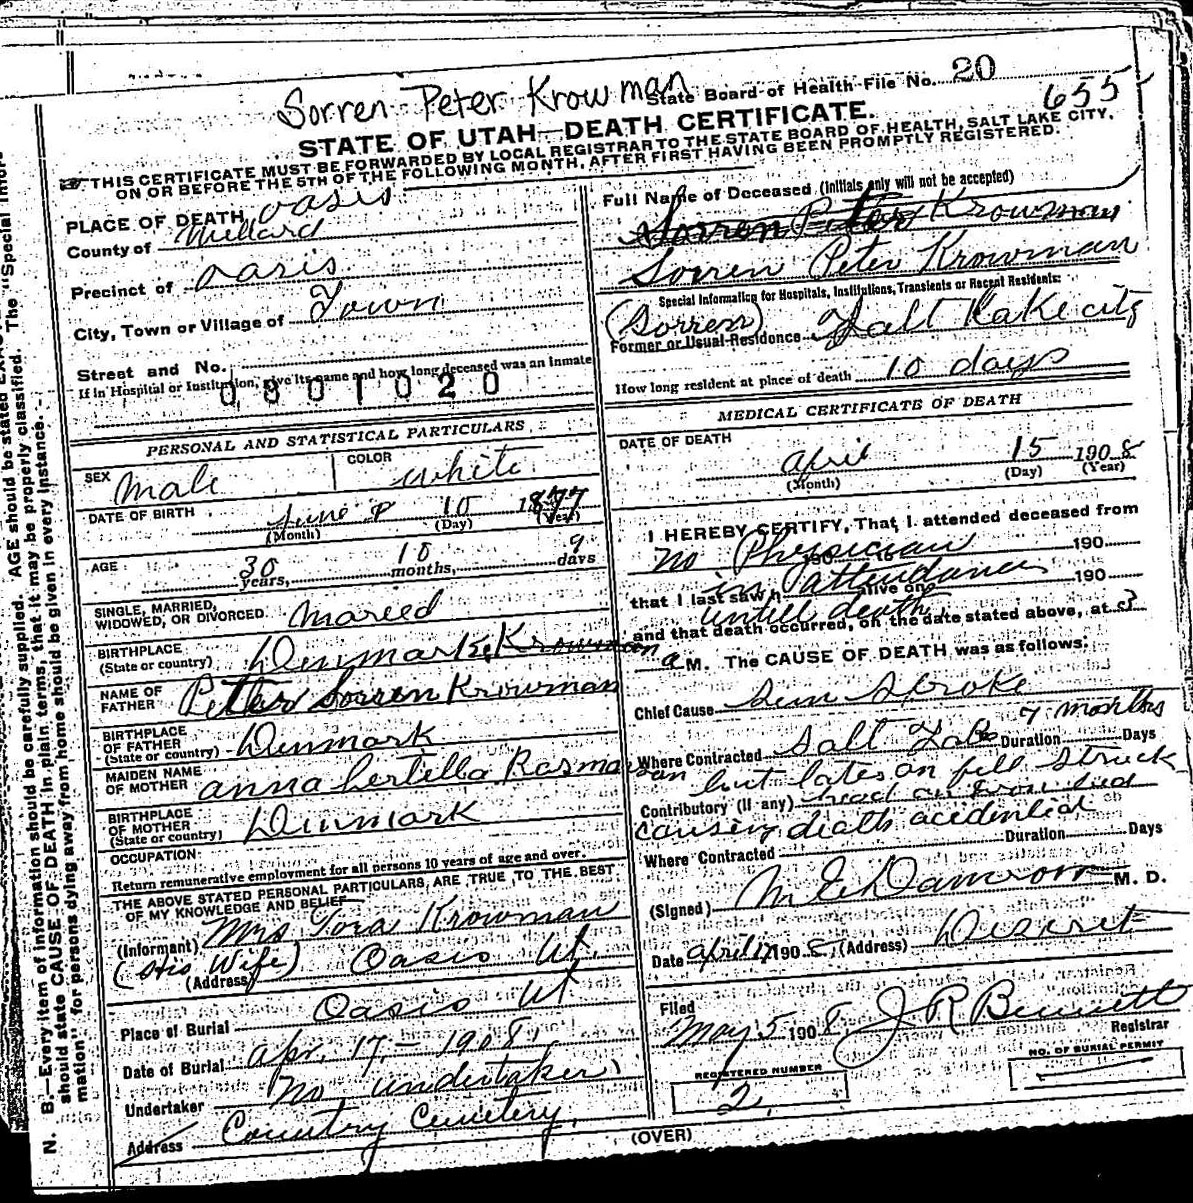 Sorren Peter Krowman
State Board of Health File No. 20
655
STATE OF UTAH—DEATH CERTIFICATE.
THIS CERTIFICATE MUST BE FORWARDED BY LOCAL REGISTRAR TO THE STATE BOARD OF HEALTH, SALT LAKE CITY,
ON OR BEFORE THE 5TH OF THE FOLLOWING MONTH, AFTER FIRST HAVING BEEN PROMPTLY REGISTERED.
PLACE OF DEATH Oasis
County of Millard
Precinct of Oasis
City, Town or Village of Town
Street and No.
If in Hospital or Institution, give its name and how long deceased was an inmate
0801020
PERSONAL AND STATISTICAL PARTICULARS
SEX Male COLOR White
DATE OF BIRTH June 10 1877
(Month) (Day) (Year)
AGE 30 years, 10 months, 9 days
SINGLE, MARRIED,
WIDOWED, OR DIVORCED. Mareed
BIRTHPLACE
(State or country) Denmark Krowman
NAME OF
FATHER Petter Sorren Krowman
BIRTHPLACE
OF FATHER
(State or country) Denmark
MAIDEN NAME
OF MOTHER anna
BIRTHPLACE
OF MOTHER
(State or country) Dinmark
OCCUPATION
Return remunerative employment for all persons 10 years of age and over.
THE ABOVE STATED PERSONAL PARTICULARS ARE TRUE TO THE BEST
OF MY KNOWLEDGE AND BELIEF
(Informant) Mrs Tora Krowman
(His Wife) Oasis Ut.
(Address)
Place of Burial Oasis Ut
Date of Burial Apr. 17,- 1908
Undertaker No undertaker
Address Country Cemetery,
Full Name of Deceased (Initials only will not be accepted)
Sorren Peter Krowman
Sorren Peter Krowman
Special Information for Hospitals, Institutions, Transients or Recent Residents:
(Sorren)
Former or Usual Residence Salt Lake city
How long resident at place of death 10 days
MEDICAL CERTIFICATE OF DEATH
DATE OF DEATH April 15 1908
(Month) (Day) (Year)
I HEREBY CERTIFY, That I attended deceased from
No Physician 190
in attendance
that I last saw h alive on 190
untill death
and that death occurred, on the date stated above, at 3
a M. The CAUSE OF DEATH was as follows:
Chief Cause Sun Stroke
7 months
Where Contracted Salt Lake Duration Days
but later on fell struck
Contributory (if any) head on Iron bed
causing death acidential
Where Contracted Duration Days
(Signed) M E Damron M. D.
Date April 17 1908 (Address) Deseret
Filed
May 5 1908 J R Bennett
Registrar
REGISTERED NUMBER
2
NO. OF BURIAL PERMIT
(OVER)
N. B.—Every item of information should be carefully supplied. AGE should be stated
should state CAUSE OF DEATH in plain terms, that it may be properly classified. The "Special Infor-
mation" for persons dying away from home should be given in every instance.